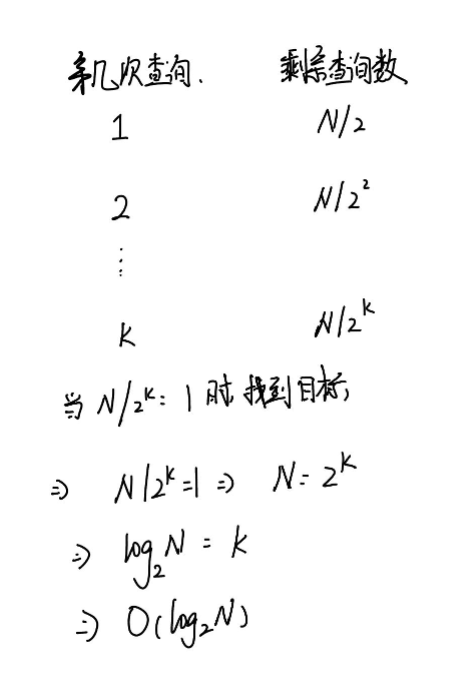 第几次查询. 剩余查询数
1 N/2
2 N/2²
⋮
k N/2^k
当 N/2^k = 1 时 找到目标,
⇒ N/2^k = 1 ⇒ N = 2^k
⇒ log₂N = k
⇒ O(log₂N)